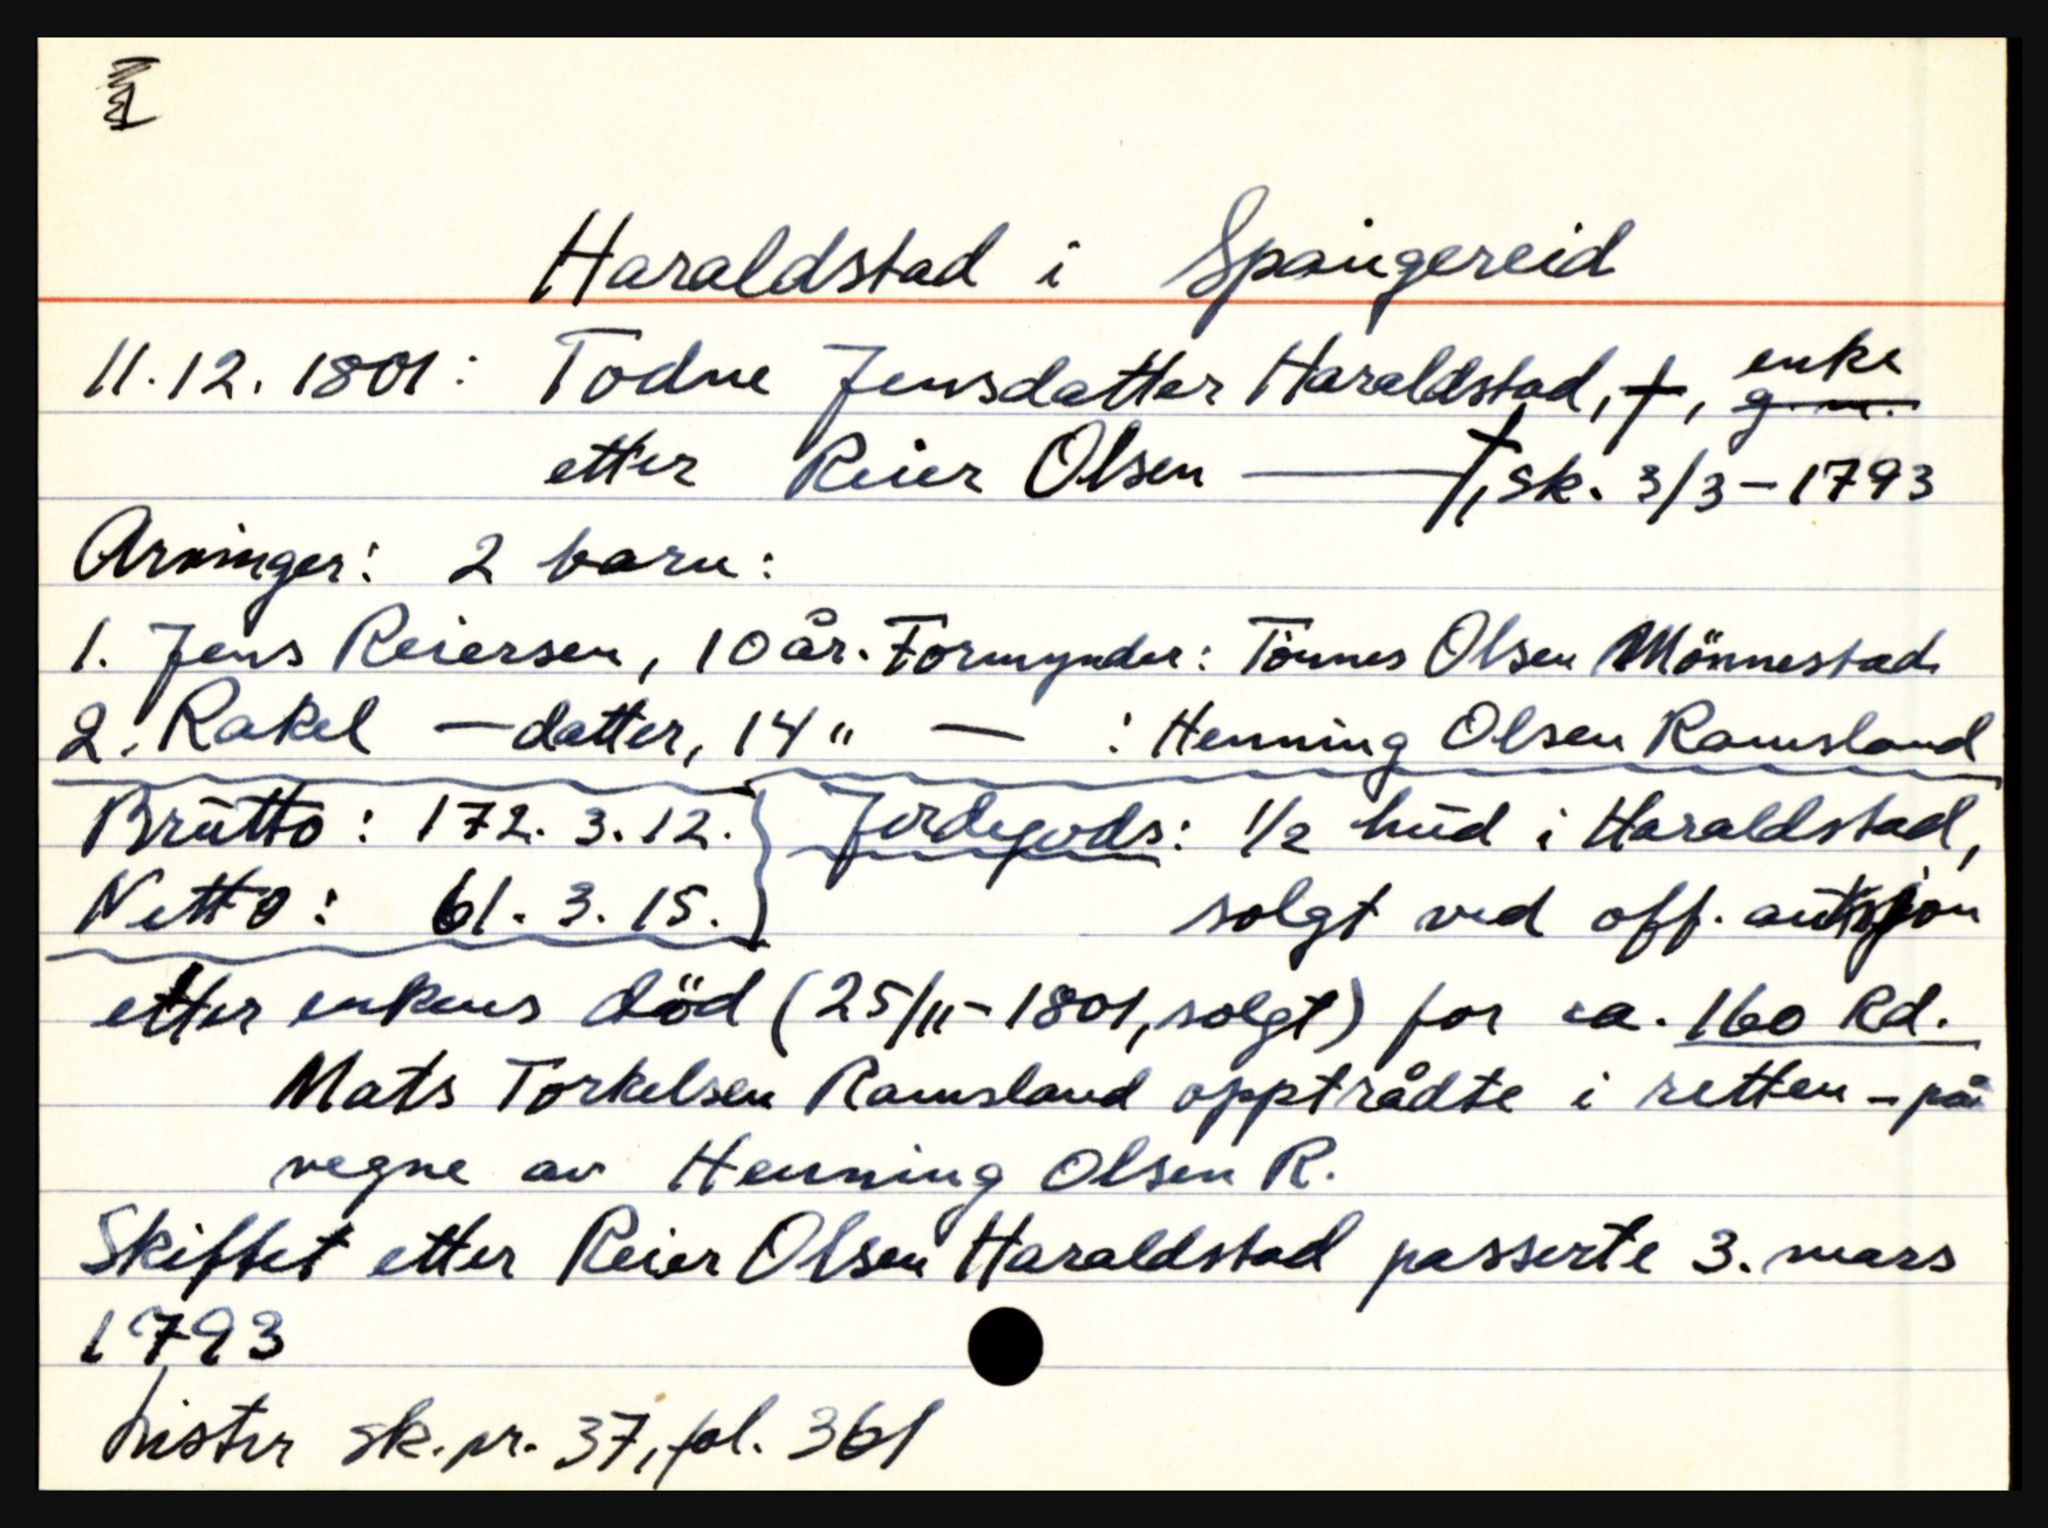 Haraldstad i Spangereid
11.12.1801: Todne Jensdatter Haraldstad, †, enke g.m.
etter Reier Olsen — †, sk. 3/3-1793
Arvinger: 2 barn:
1. Jens Reiersen, 10 år. Formynder: Tönnes Olsen Mönnestad
2. Rakel — datter, 14 " — : Henning Olsen Ramsland
Brutto: 172. 3. 12. } Jordegods: 1/2 hud i Haraldstad,
Netto: 61. 3. 15. } solgt ved off. autsjon
etter enkens död (25/11-1801, solgt) for ca. 160 Rd.
Mats Torkelsen Ramsland opptrådte i retten - på
vegne av Henning Olsen R.
Skiftet etter Reier Olsen Haraldstad passerte 3. mars
1793
Lister sk.pr. 37, fol. 361